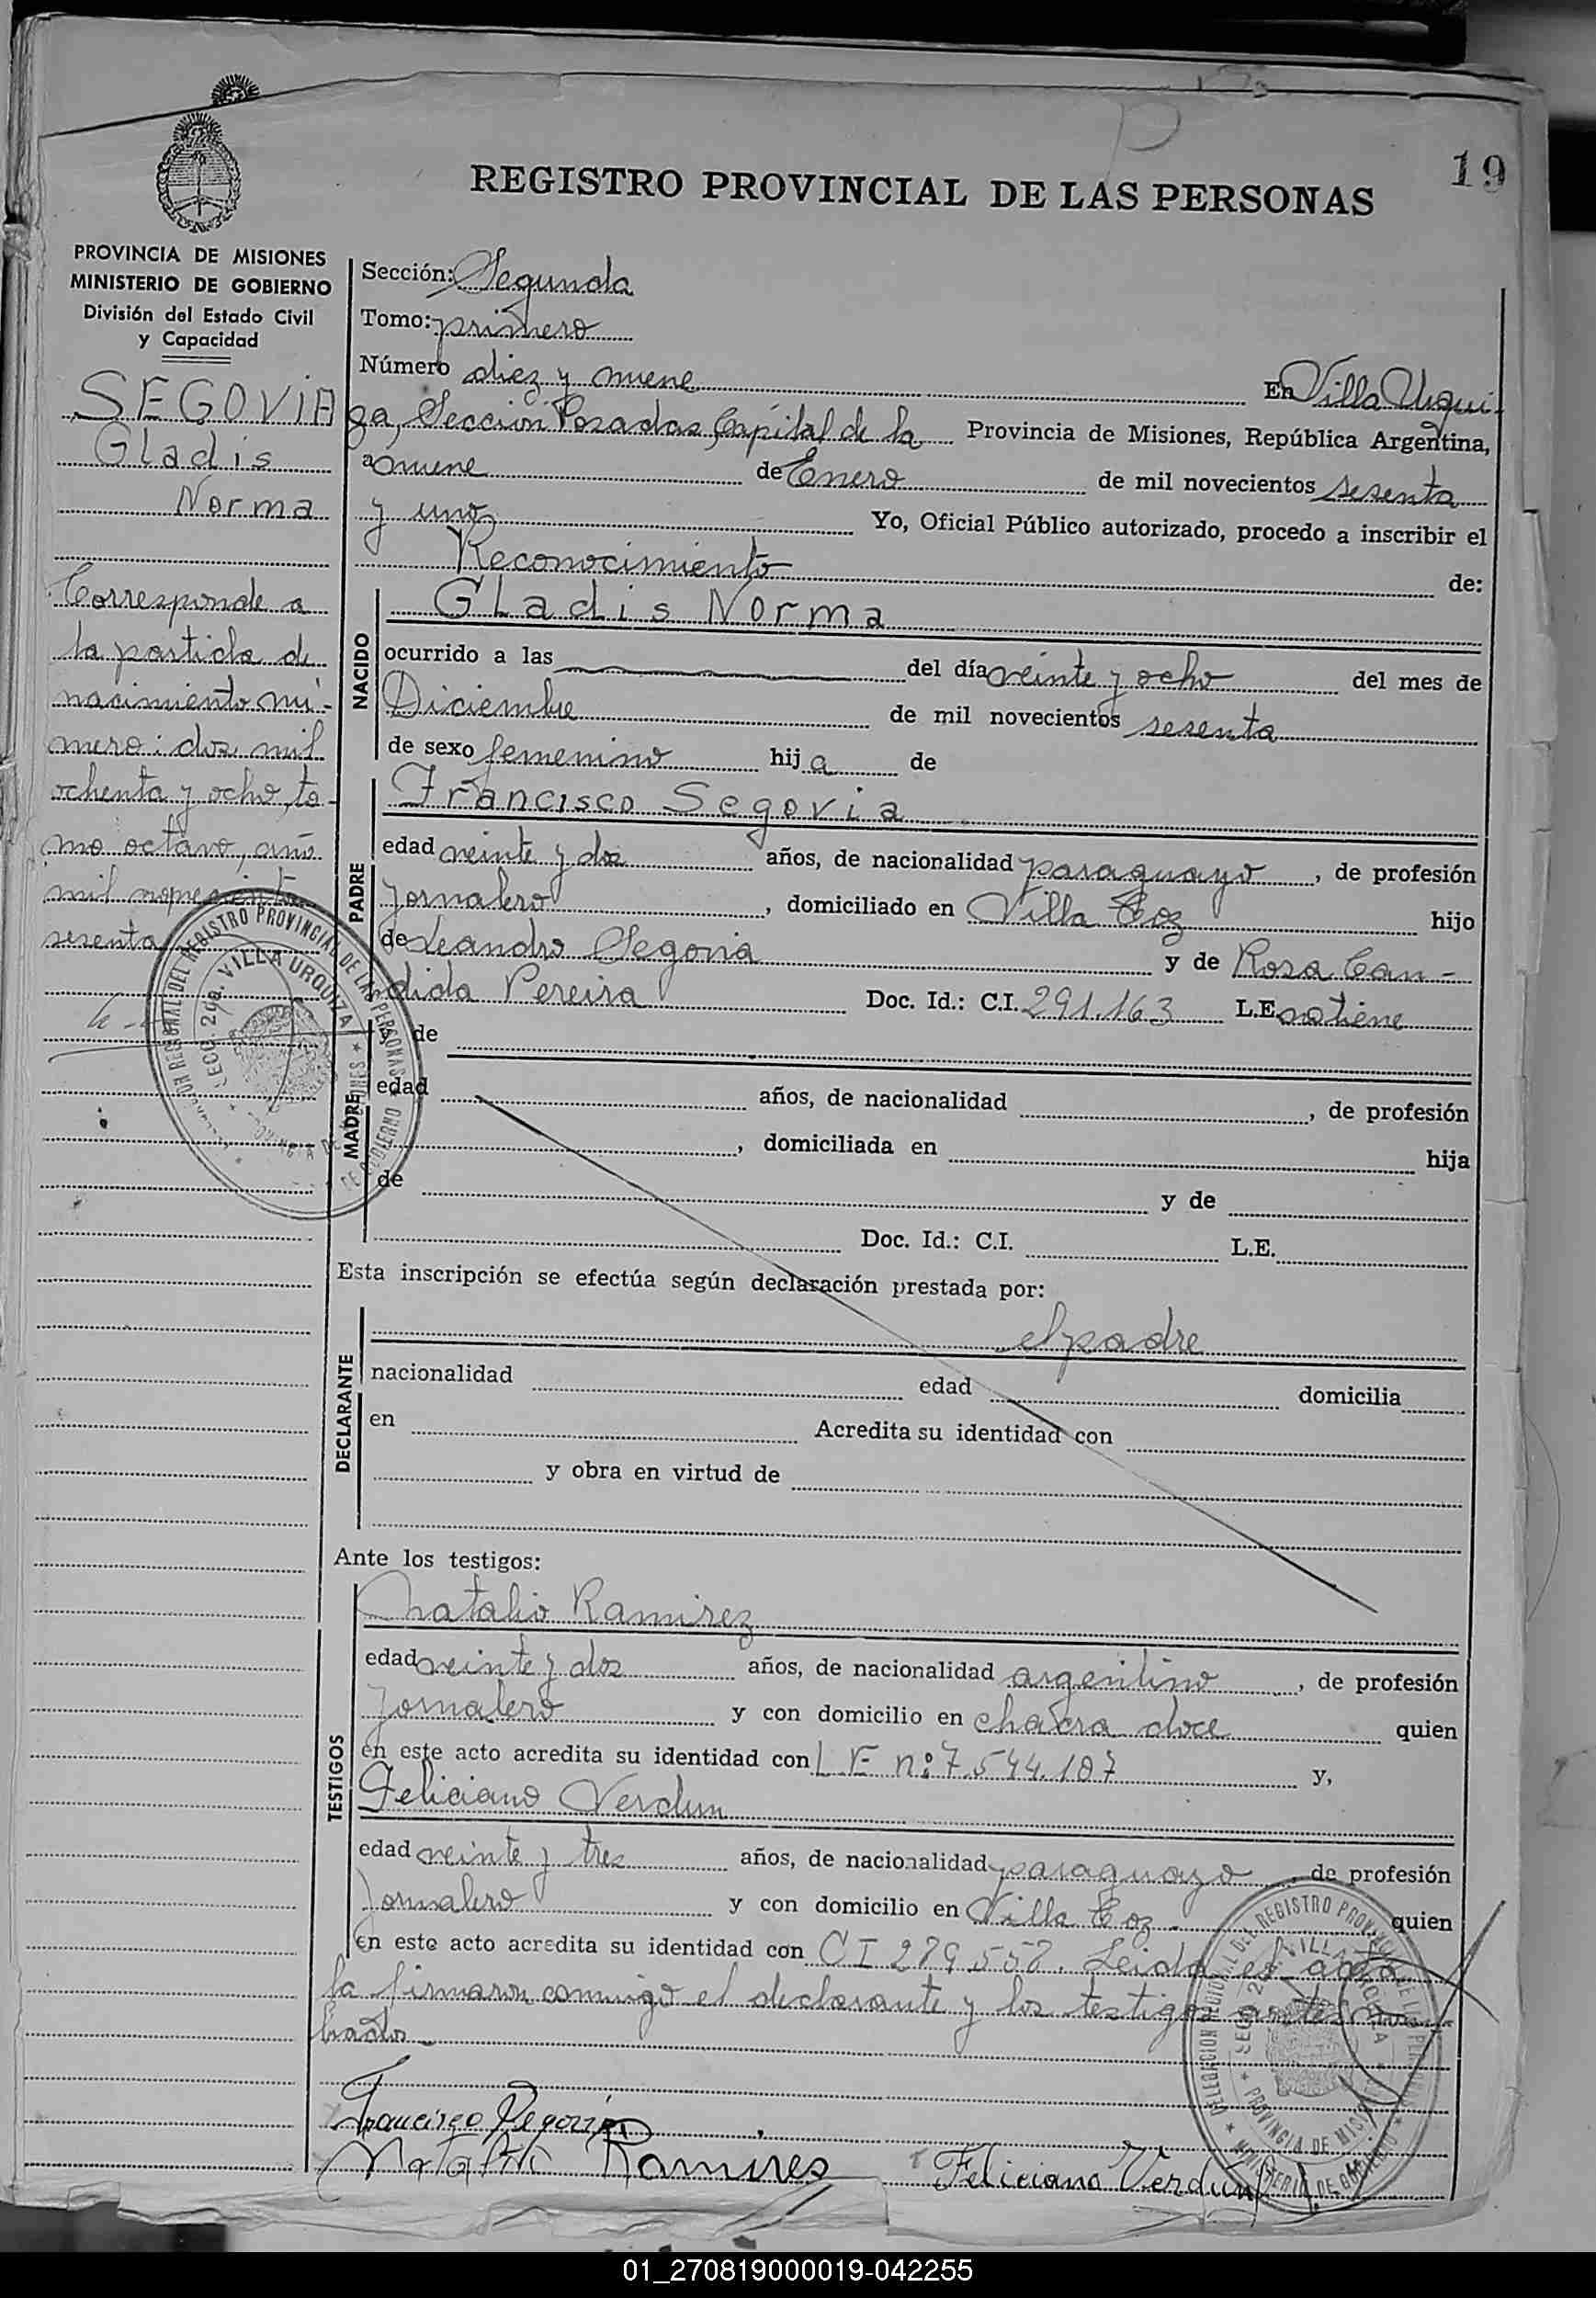 19
REGISTRO PROVINCIAL DE LAS PERSONAS
PROVINCIA DE MISIONES
MINISTERIO DE GOBIERNO
División del Estado Civil
y Capacidad
SEGOVIA
Gladis
Norma
Corresponde a
la partida de
nacimiento nú-
mero: dos mil
ochenta y ocho, to-
mo octavo, año
mil novecientos
sesenta
Sección: Segunda
Tomo: primero
Número diez y nueve En Villa Urqui-
za, Sección Posadas, Capital de la Provincia de Misiones, República Argentina,
a nueve de Enero de mil novecientos sesenta
y uno Yo, Oficial Público autorizado, procedo a inscribir el
Reconocimiento de:
NACIDO
Gladis Norma
ocurrido a las del día veinte y ocho del mes de
Diciembre de mil novecientos sesenta
de sexo femenino hija de
PADRE
Francisco Segovia
edad veinte y dos años, de nacionalidad paraguayo, de profesión
Jornalero, domiciliado en Villa Coz hijo
de Leandro Segovia y de Rosa Can-
dida Pereira Doc. Id.: C.I. 291.163 L.E. no tiene
MADRE
y de
edad años, de nacionalidad , de profesión
, domiciliada en hija
de y de
Doc. Id.: C.I. L.E.
Esta inscripción se efectúa según declaración prestada por:
DECLARANTE
el padre
nacionalidad edad domicilia
en Acredita su identidad con
y obra en virtud de
Ante los testigos:
TESTIGOS
Natalio Ramirez
edad veinte y dos años, de nacionalidad argentino, de profesión
Jornalero y con domicilio en chacra doce quien
en este acto acredita su identidad con L E nº 7.544.187 y,
Feliciano Verdun
edad veinte y tres años, de nacionalidad paraguayo, de profesión
Jornalero y con domicilio en Villa Coz quien
en este acto acredita su identidad con CI 289.558. Leida el acta
la firmaron conmigo el declarante y los testigos antes
Francisco Segovia
Natalio Ramires Feliciano Verdun
DELEGACION REGIONAL DEL REGISTRO PROVINCIAL DE LAS PERSONAS
SECC. 2da. VILLA URQUIZA
PROVINCIA DE MISIONES
MINISTERIO DE GOBIERNO
01_270819000019-042255